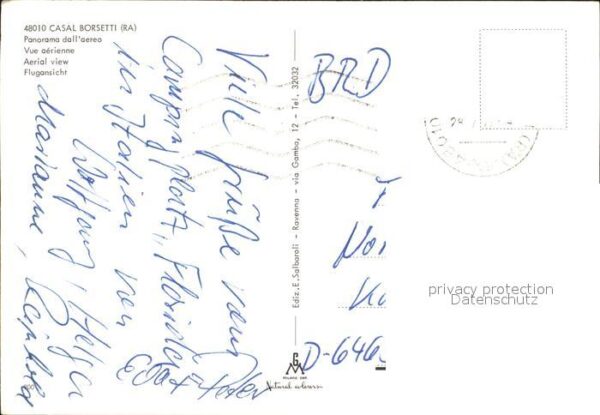 48010 CASAL BORSETTI (RA)
Panorama dall'aereo
Vue aérienne
Aerial view
Flugansicht
Viele Grüße vom
Campingplatz
in Italien von
Wolfgang, Helga
Marianne,
Ediz. E. Salbaroli - Ravenna - via Gamba, 12 - Tel. 32032
BRD
D-646
privacy protection
Datenschutz